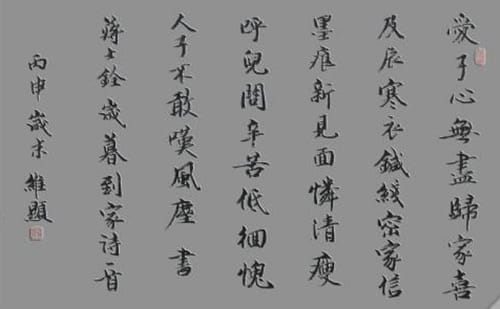 愛子心無盡歸家喜
及辰寒衣鍼綫密家信
墨痕新見面憐清瘦
呼兒問辛苦低徊愧
人子不敢嘆風塵 書
蔣士銓歲暮到家诗一首
丙申歲末維顯